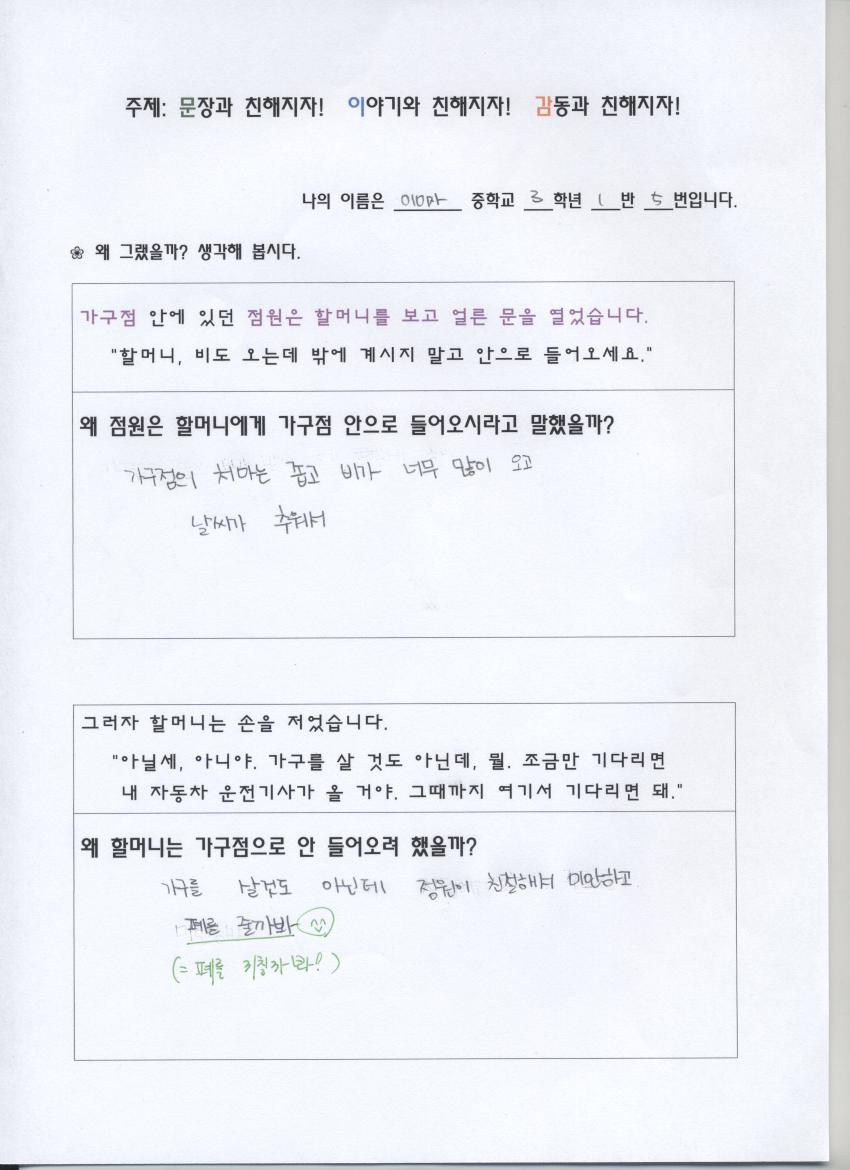 주제: 문장과 친해지자! 이야기와 친해지자! 감동과 친해지자!
나의 이름은 이마 중학교 3학년 1반 5번입니다.
❀ 왜 그랬을까? 생각해 봅시다.
가구점 안에 있던 점원은 할머니를 보고 얼른 문을 열었습니다.
"할머니, 비도 오는데 밖에 계시지 말고 안으로 들어오세요."
왜 점원은 할머니에게 가구점 안으로 들어오시라고 말했을까?
가구점의 처마는 좁고 비가 너무 많이 오고
날씨가 추워서
그러자 할머니는 손을 저었습니다.
"아닐세, 아니야. 가구를 살 것도 아닌데, 뭘. 조금만 기다리면
내 자동차 운전기사가 올 거야. 그때까지 여기서 기다리면 돼."
왜 할머니는 가구점으로 안 들어오려 했을까?
가구를 살것도 아닌데 점원이 친절해서 미안하고
폐를 줄까봐 ^^
(= 폐를 끼칠까 봐! )